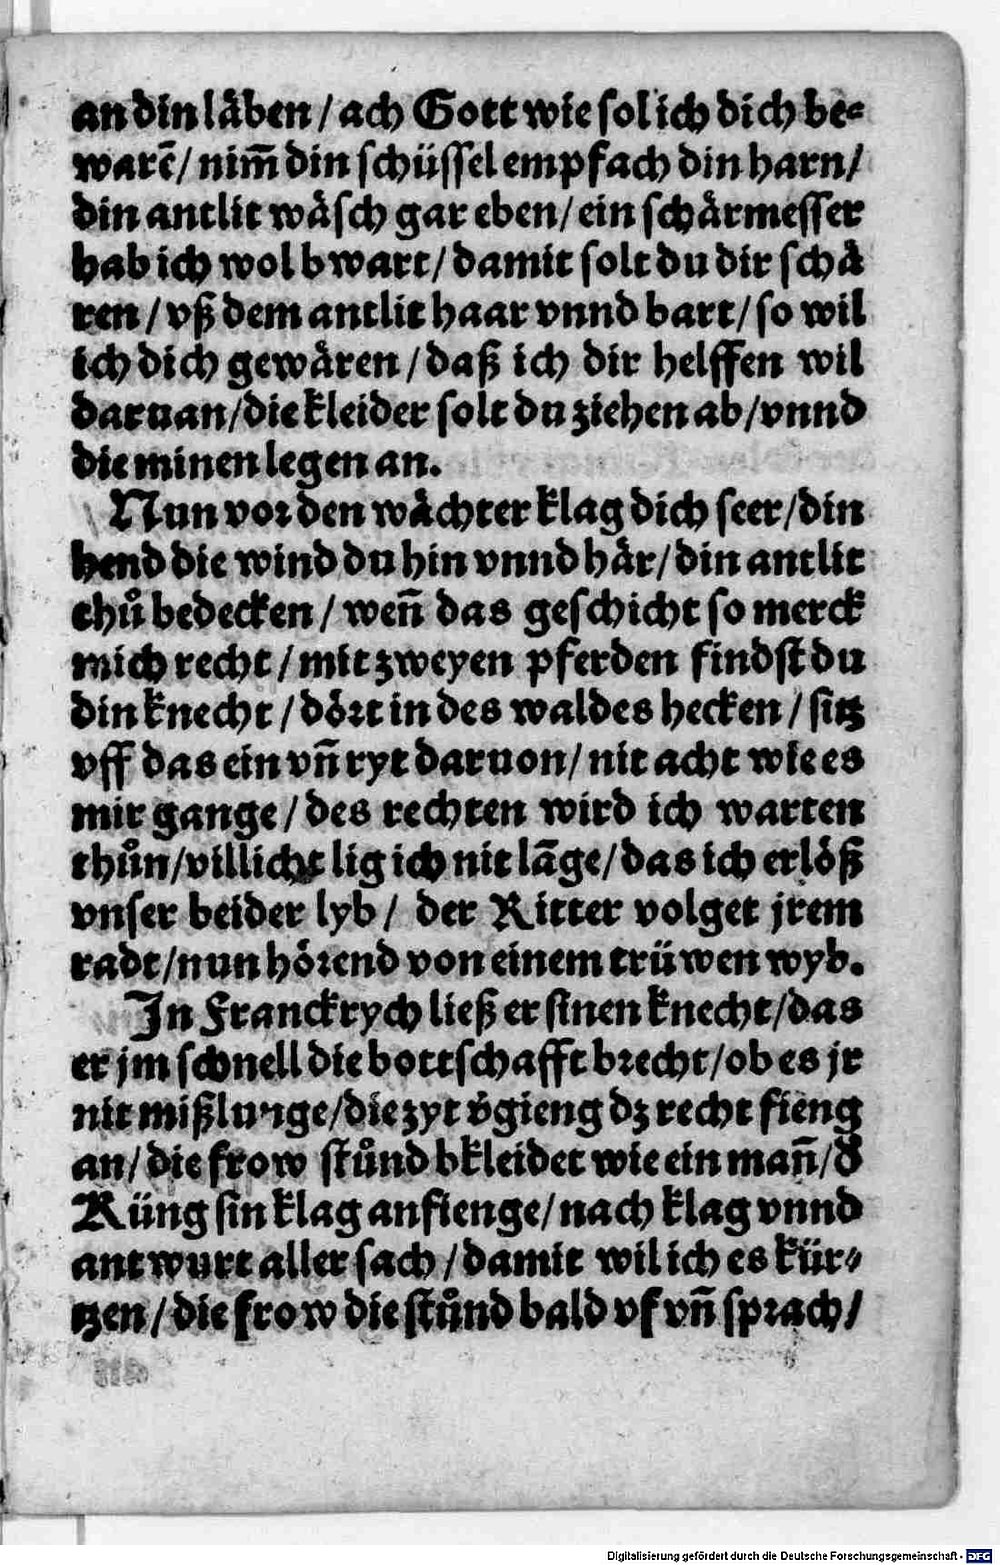 an din läben / ach Gott wie sol ich dich be-
warē / nim̄ din schüssel empfach din harn /
din antlit wäsch gar eben / ein schärmesser
hab ich wol bwart / damit solt du dir schä
ren / vß dem antlit haar vnnd bart / so wil
ich dich gewären / daß ich dir helffen wil
daruan / die kleider solt du ziehen ab / vnnd
die minen legen an.
Nun vor den wächter klag dich seer / din
hend die wind du hin vnnd här / din antlit
thů bedecken / weñ das geschicht so merck
mich recht / mit zweyen pferden findst du
din knecht / dört in des waldes hecken / sitz
vff das ein vñ ryt daruon / nit acht wie es
mir gange / des rechten wird ich warten
thůn / villicht lig ich nit lāge / das ich erlöß
vnser beider lyb / der Ritter volget jrem
radt / nun hörend von einem trüwen wyb.
In Franckrych ließ er sinen knecht / das
er jm schnell die bottschafft brecht / ob es jr
nit mißlunge / die zyt v̄gieng dz recht fieng
an / die frow stůnd bkleidet wie ein mañ / d̄
Küng sin klag anfienge / nach klag vnnd
antwurt aller sach / damit wil ich es kür-
tzen / die frow die stůnd bald vf vñ sprach /
Digitalisierung gefördert durch die Deutsche Forschungsgemeinschaft - DFG